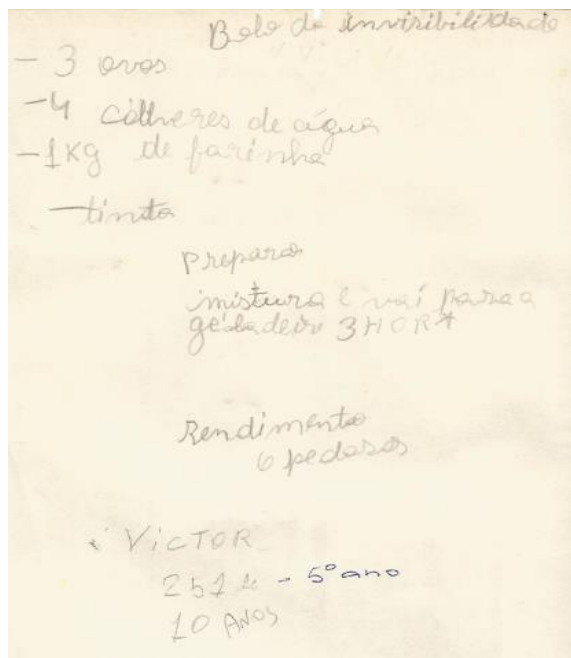 Bolo da invisibilidade
- 3 ovos
- 4 colheres de água
- 1 Kg de farinha
- tinta
Preparo
mistura e vai para a
geladeira 3 HORA
Rendimento
6 pedasos
VICTOR
- 5º ano
10 ANOS